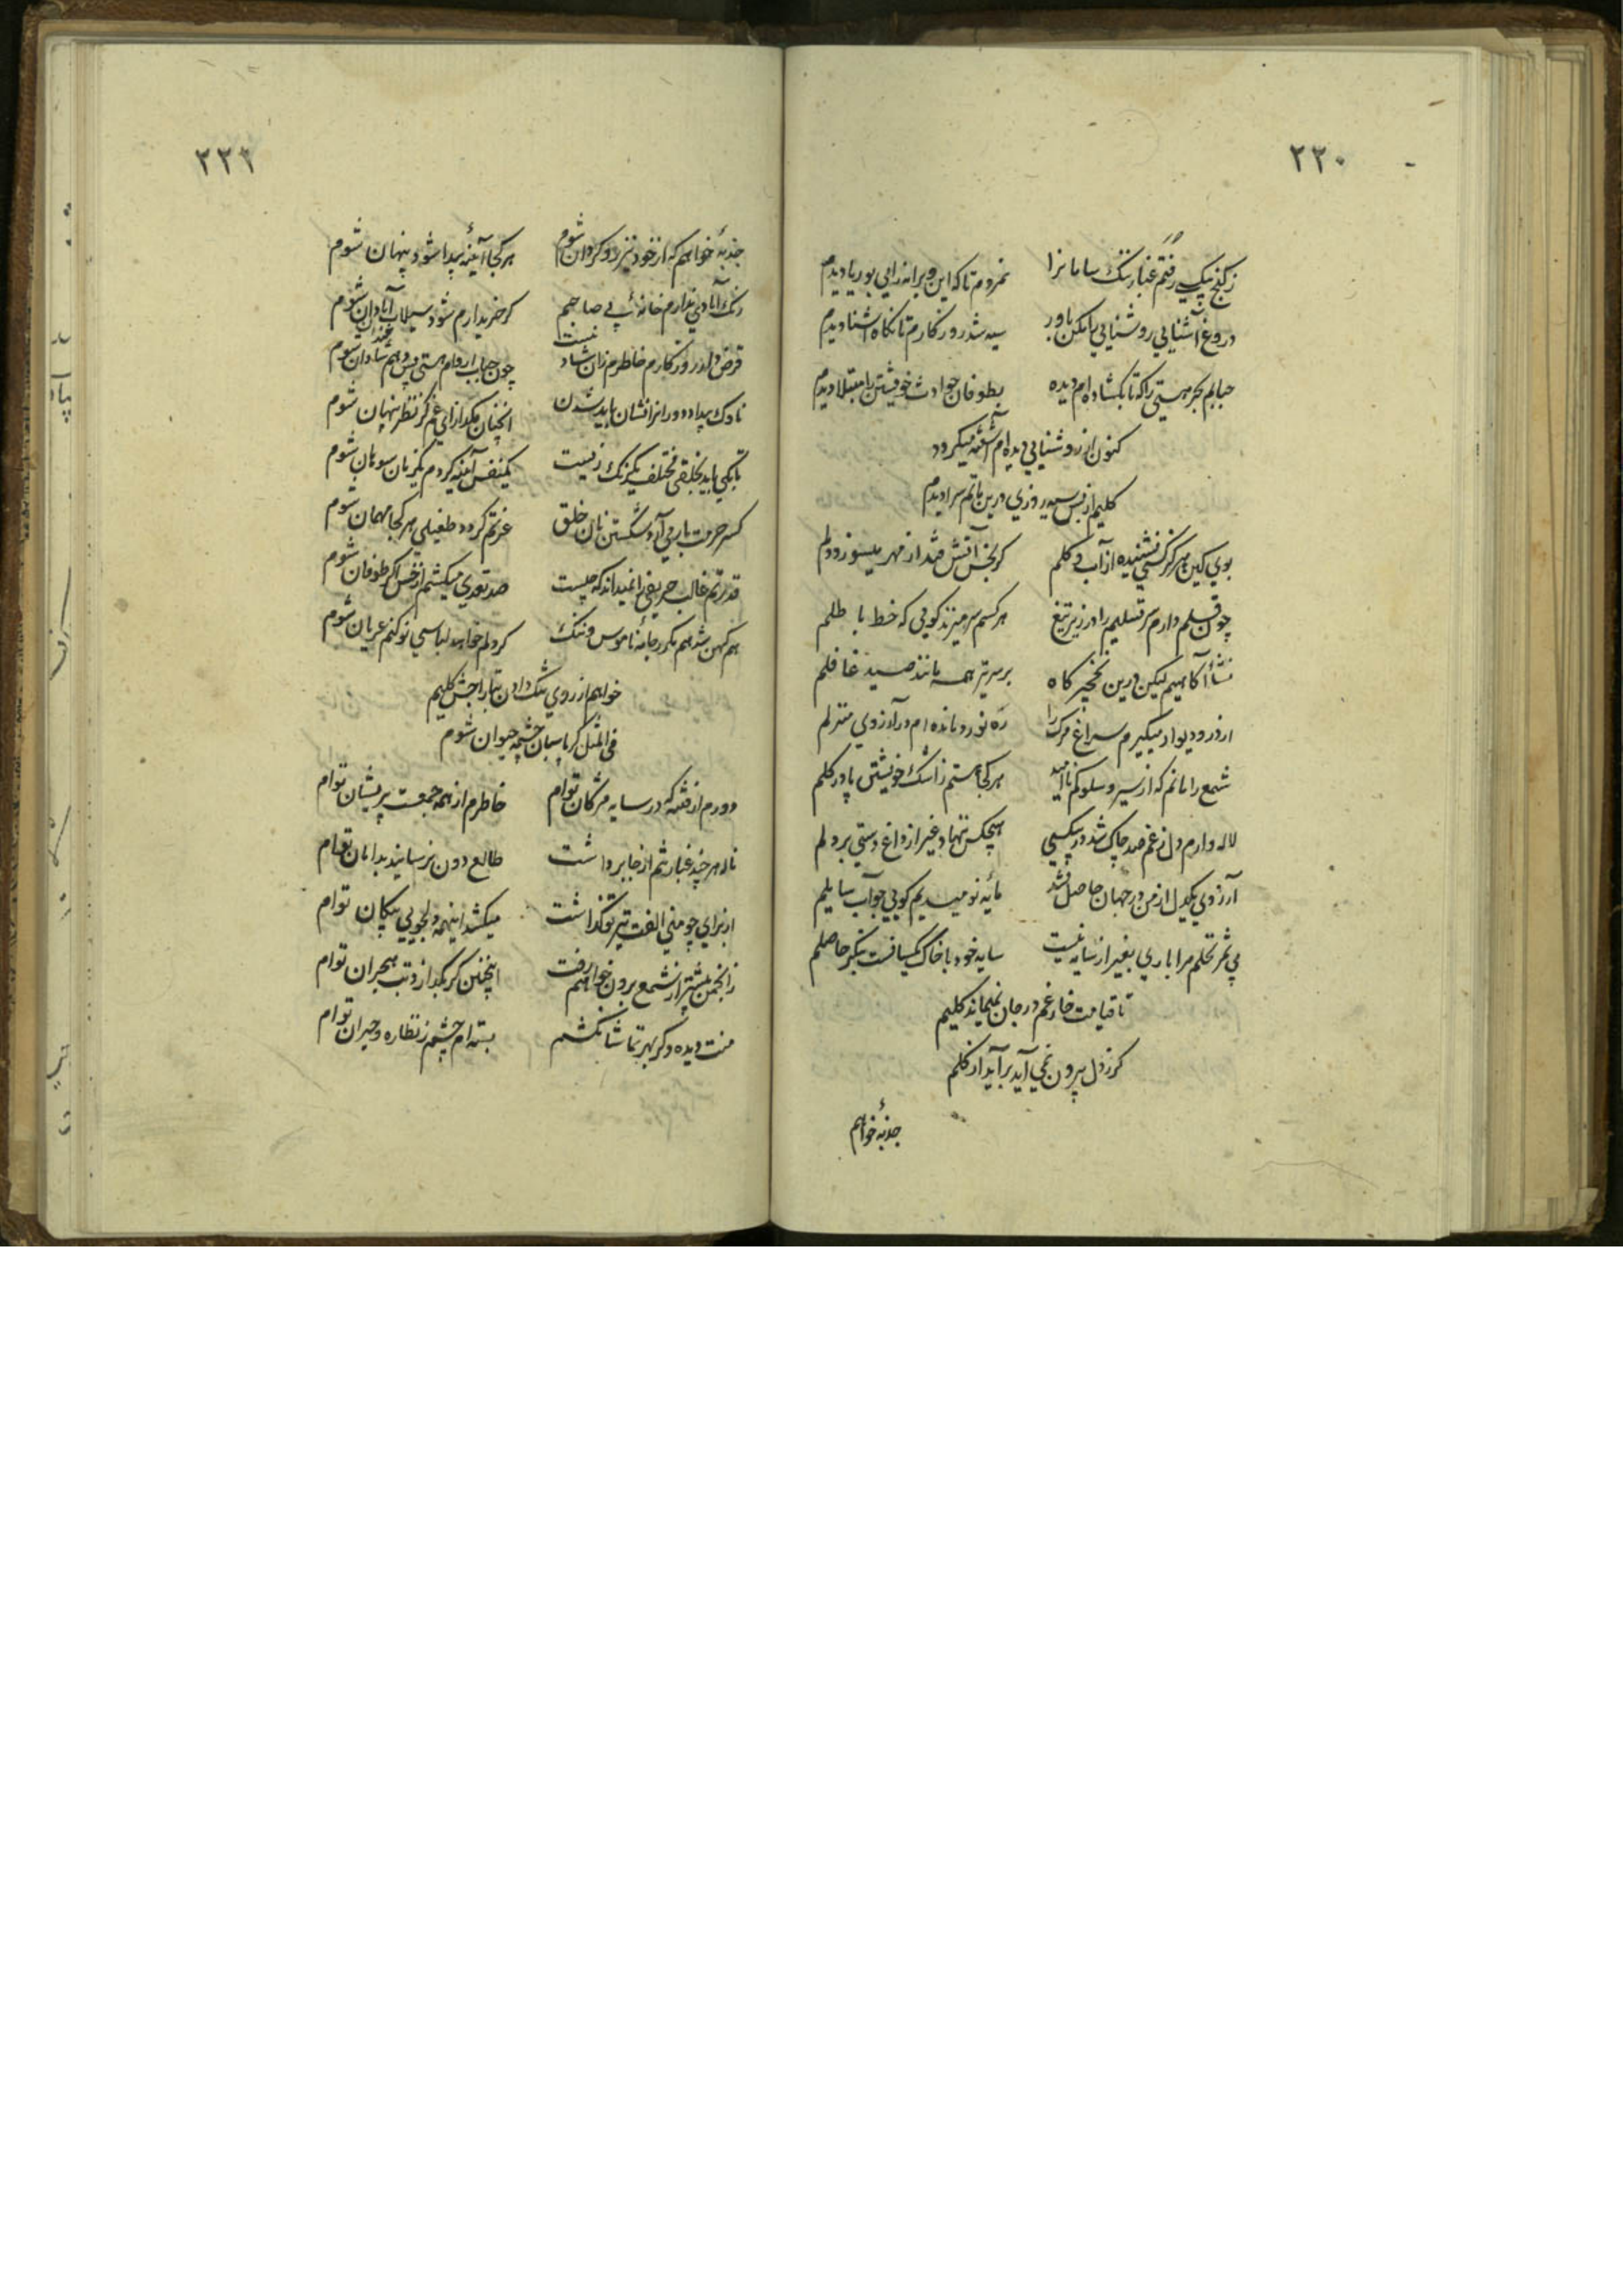 ۲۲۰
ز کنج بیکسی رفتم غبار ننک سامانرا نمردم تا که این ویرانه را بی بوریا دیدم
دروغ آشنایی روشنایی را مکن باور سیه شد روزکارم تا نکاه آشنا دیدم
حبابم بحر هستی را که تا بکشاده ام دیده بطوفان حوادث خویشتن را مبتلا دیدم
کنون از روشنایی دیده ام آشفته میکردد
کلیم از بس سیه روزی درین ماتم سرا دیدم
بوی کین هرکز کسی نشنیده از آب و کلم کر بخس آتش فتد از مهر میسوزد دلم
چون قلم دارم سر تسلیم را در زیر تیغ هر کسم سر میزند کویی که خط باطلم
منشأ آکاهیم لیکن درین نخجیر کاه بر سر تیر همه مانند صید غافلم
از در و دیوار میکیرم سراغ مرک را ره نورد مانده ام در آرزوی منزلم
شمع را مانم که از سیر و سلوکم ناامید هر کجا هستم ز اشک خویشتن پا در کلم
لاله وارم دل ز غم صد چاک شد در بیکسی هیچکس ننهاد غیر از داغ دستی بر دلم
آرزوی یکدل از من در جهان حاصل نشد مایه نومیدیم کویی جواب سایلم
بی ثمر نخلم مرا باری بغیر از سایه نیست سایه خود با خاک یکسانست بنکر حاصلم
تا قیامت خار غم در جان نمیماند کلیم
کر ز دل بیرون نمی آید بر آید از کلم
جذبهٔ خواهم
۲۲۱
جذبهٔ خواهم که از خود نیز رو کردان شوم هر کجا آینهٔ پیدا شود پنهان شوم
رنک آبادی ندارم خانهٔ بی صاحبم کر خریدارم شود سیلاب آبادان شوم
قرض دارد روزکارم خاطرم زان شاد نیست چون حباب از وام هستی پس دهم شادان شوم
ناوک بیداد دورانرا نشان باید شدن آنچنان مکداز ای غم کز نظر پنهان شوم
تا بکی باید بخلقی مختلف یکرنک زیست یکنفس آینه کردم یکزمان سوهان شوم
کسر حرمت بار می آرد شکستن نان خلق عزتم کردد طفیلی هر کجا مهمان شوم
قدرتم غالب حریفی را نمیداند که چیست صد تعدی میکشم از خس اکر طوفان شوم
هم کهن شد هم مکرر جامهٔ ناموس و ننک کر دلم خواهد لباسی نو کنم عریان شوم
خواهم از روی تنک دادن بتاراجش کلیم
فی المثل کر پاسبان چشمه حیوان شوم
دورم از فتنه که در سایه مژکان توام خاطرم از همه جمعست پریشان توام
ناله هر چند غبارتنم از جا برداشت طالع دون نرسانید بدامان توام
از برای چو منی الفت تیر تو کذاشت میکشد اینهمه دلجویی پیکان توام
ز انجمن بیشتر از شمع برون خواهم رفت اینچنین کر بکدازد تب هجران توام
منت دیده دکر بهر تماشا نکشم بسته ام چشم ز نظاره و حیران توام